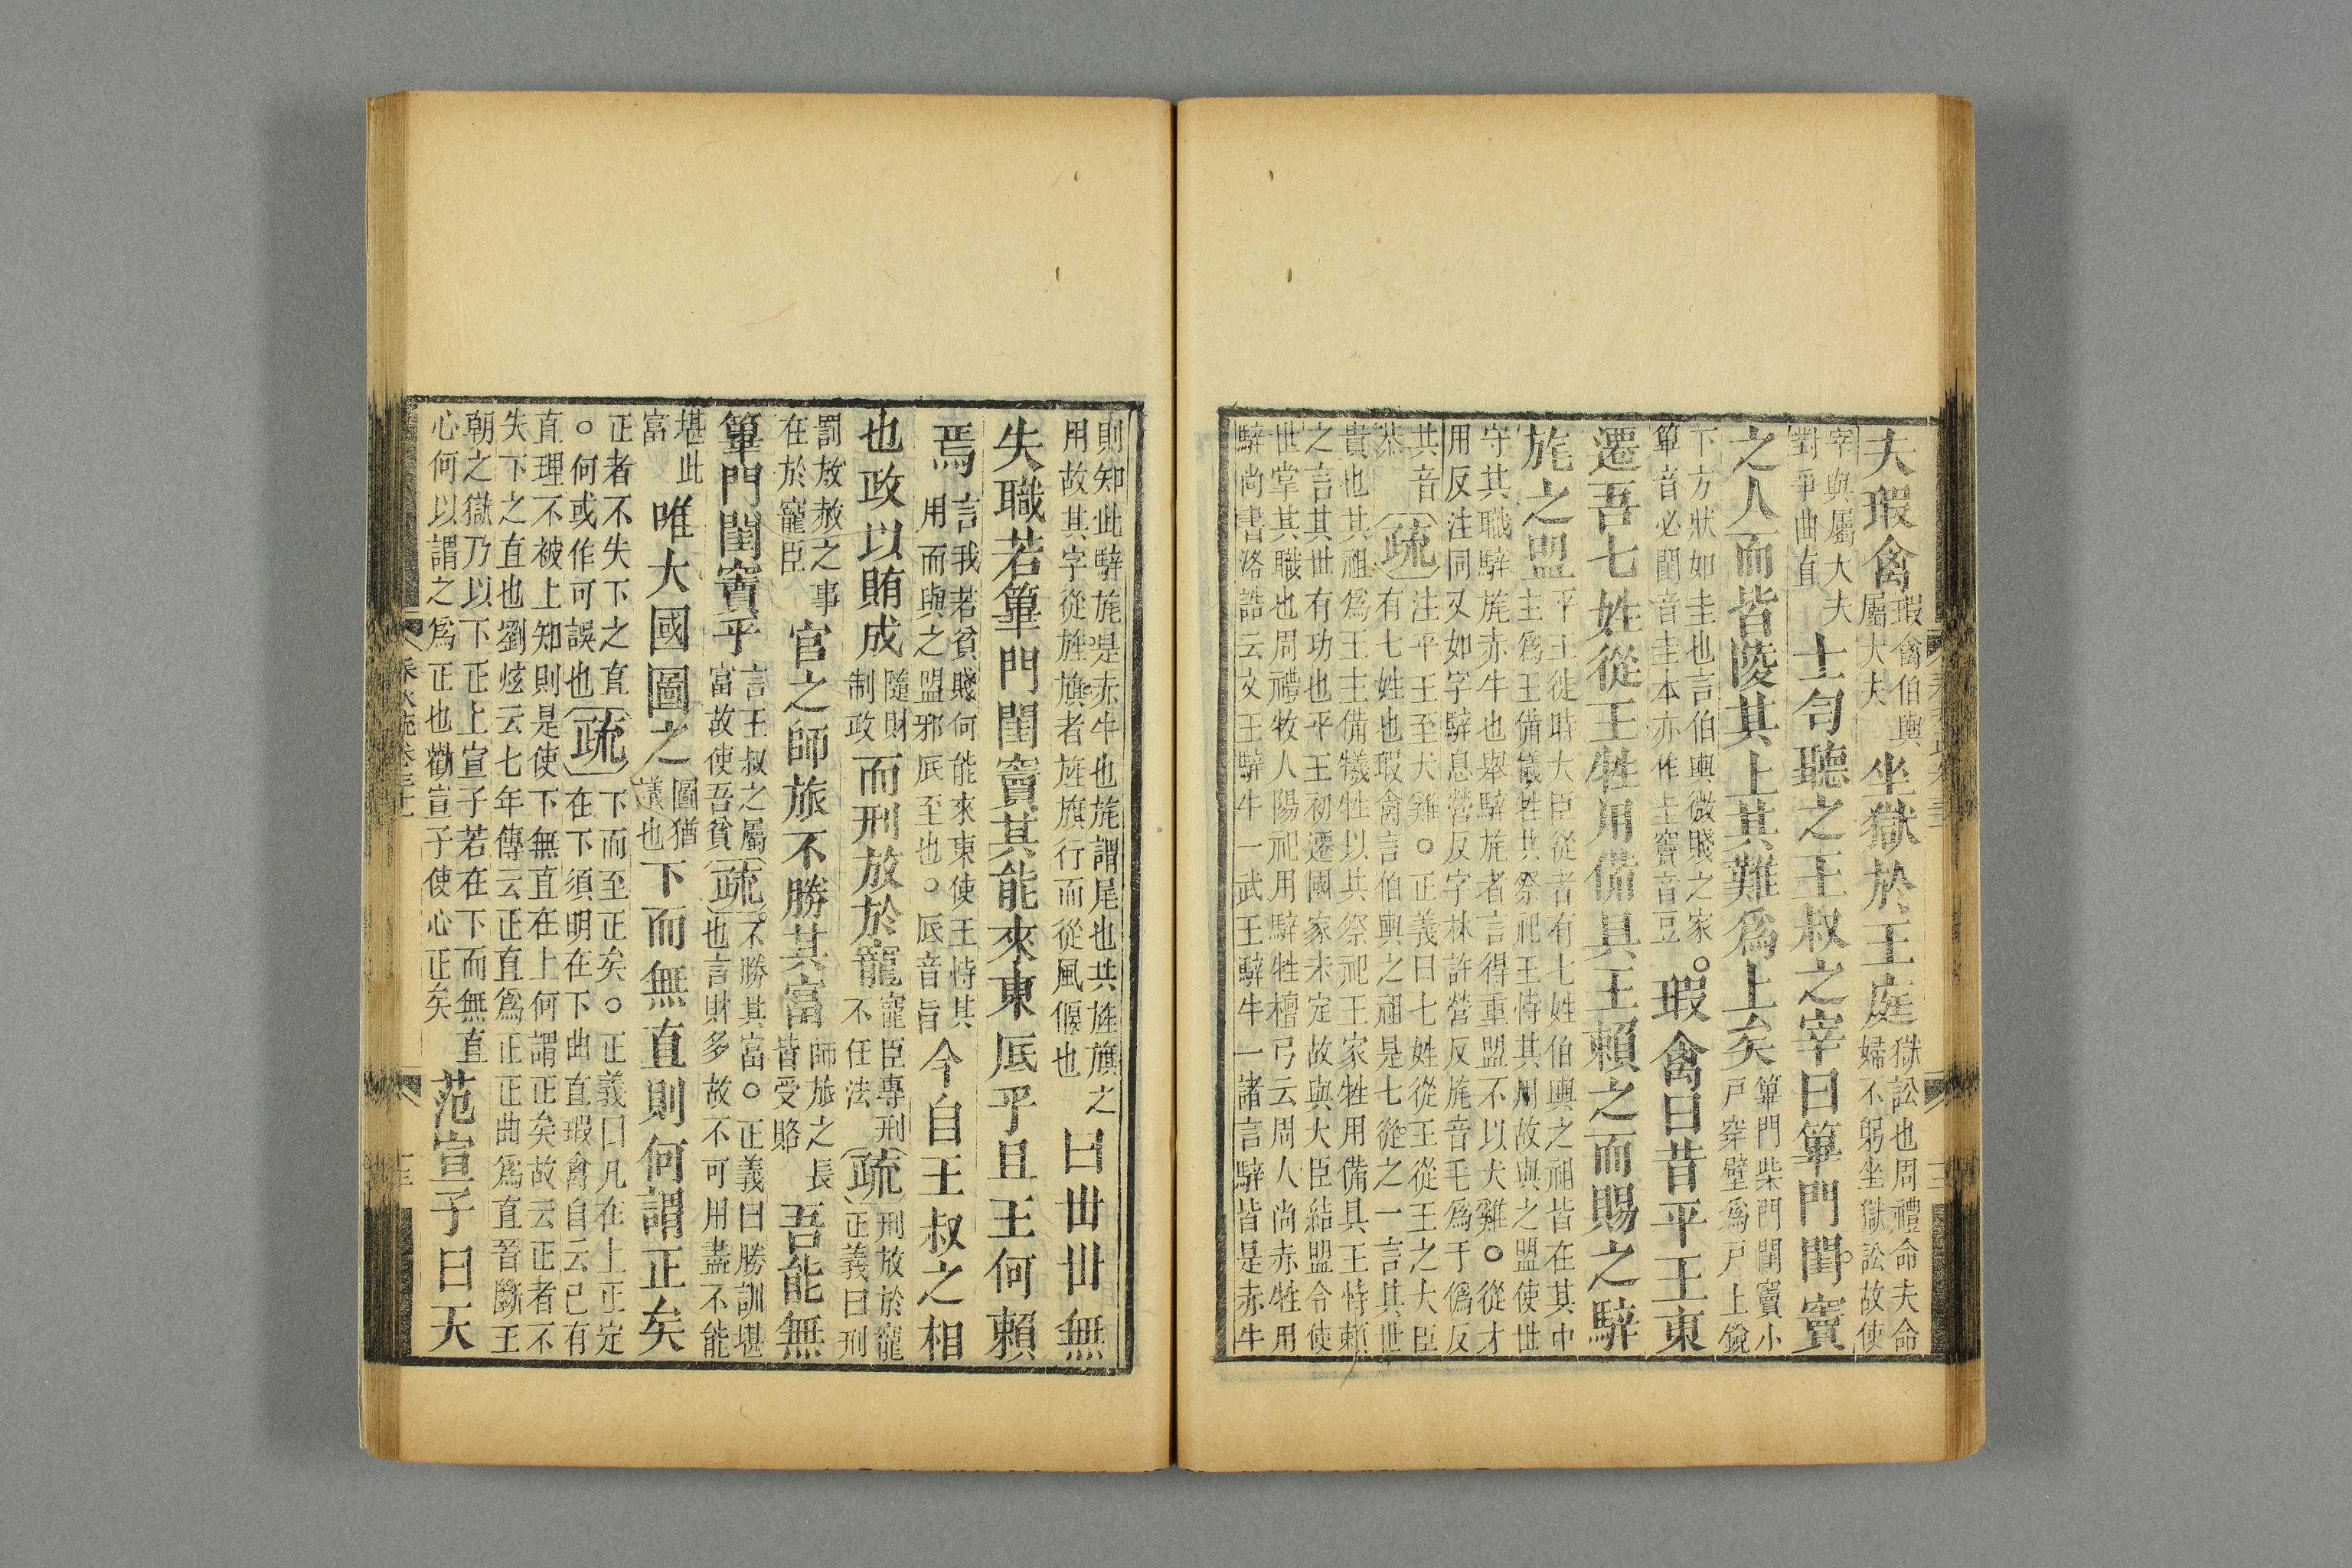 夫瑕禽
瑕禽伯輿
屬大夫
坐獄於王庭
獄訟也周禮命夫命
婦不躬坐獄訟故使
宰與屬大夫
對爭曲直
士匄聽之王叔之宰曰篳門閨竇
之人而皆陵其上其難爲上矣
篳門柴門閨竇小
戸穿壁爲戸上銳
下方狀如圭也言伯輿微賤之家。
篳音必閨音圭本亦作圭竇音豆
瑕禽曰昔平王東
遷吾七姓從王牲用備具王賴之而賜之騂
旄之盟
平王徙時大臣從者有七姓伯輿之祖皆在其中
主爲王備犧牲共祭祀王恃其用故與之盟使世
守其職騂旄赤牛也舉騂旄者言得重盟不以犬雞○從才
用反注同又如字騂息營反字林許營反旄音毛爲于僞反
共音
恭
疏
注平王至犬雞○正義曰七姓從王從王之大臣
有七姓也瑕禽言伯輿之祖是七從之一言其世
貴也其祖爲王主備犧牲以共祭祀王家牲用備具王恃賴
之言其世有功也平王初遷國家未定故與大臣結盟令使
世掌其職也周禮牧人陽祀用騂牲檀弓云周人尚赤牲用
騂尚書洛誥云文王騂牛一武王騂牛一諸言騂皆是赤牛
則知此騂旄是赤牛也旄謂尾也共旌旗之
用故其字從旌旗者旌旗行而從風偃也
曰世世無
失職若篳門閨竇其能來東底乎且王何賴
焉
言我若貧賤何能來東使王恃其
用而與之盟邪底至也。底音旨
今自王叔之相
也政以賄成
隨財
制政
而刑放於寵
寵臣專刑
不任法
疏
刑放於寵
正義曰刑
罰放赦之事
在於寵臣
官之師旅不勝其富
師旅之長
皆受賂
吾能無
篳門閨竇乎
言王叔之屬
富故使吾貧
疏
不勝其富○正義曰勝訓堪
也言財多故不可用盡不能
堪此
富
唯大國圖之
圖猶
議也
下而無直則何謂正矣
正者不失下之直
○何或作可誤也
疏
下而至正矣○正義曰凡在上正定
在下須明在下曲直瑕禽自云已有
直理不被上知則是使下無直在上何謂正矣故云正者不
失下之直也劉炫云七年傳云正直爲正正曲爲直晉斷王
朝之獄乃以下正上宣子若在下而無直
心何以謂之爲正也勸宣子使心正矣
范宣子曰天